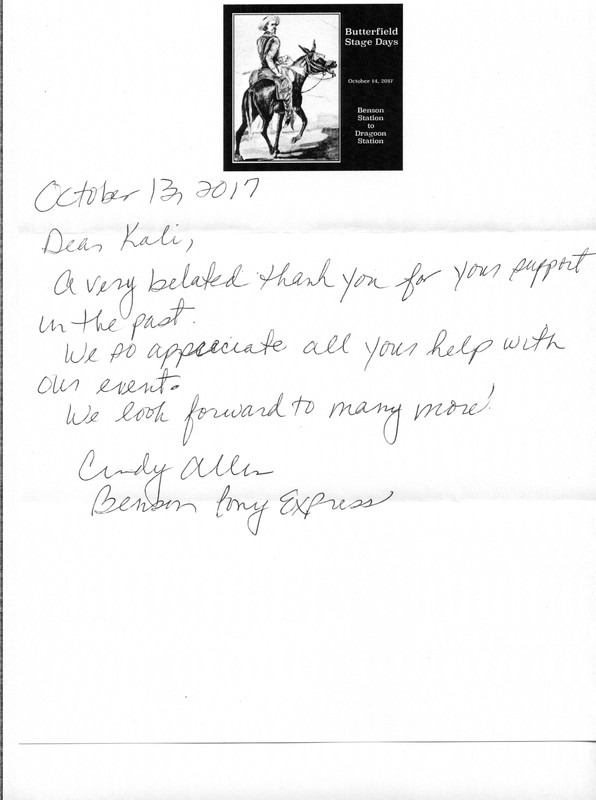 Butterfield
Stage Days
October 14, 2017
Benson
Station
to
Dragoon
Station
October 13, 2017
Dear Kali,
A very belated thank you for your support
in the past.
We so appreciate all your help with
our event.
We look forward to many more!
Cindy Allen
Benson Pony Express